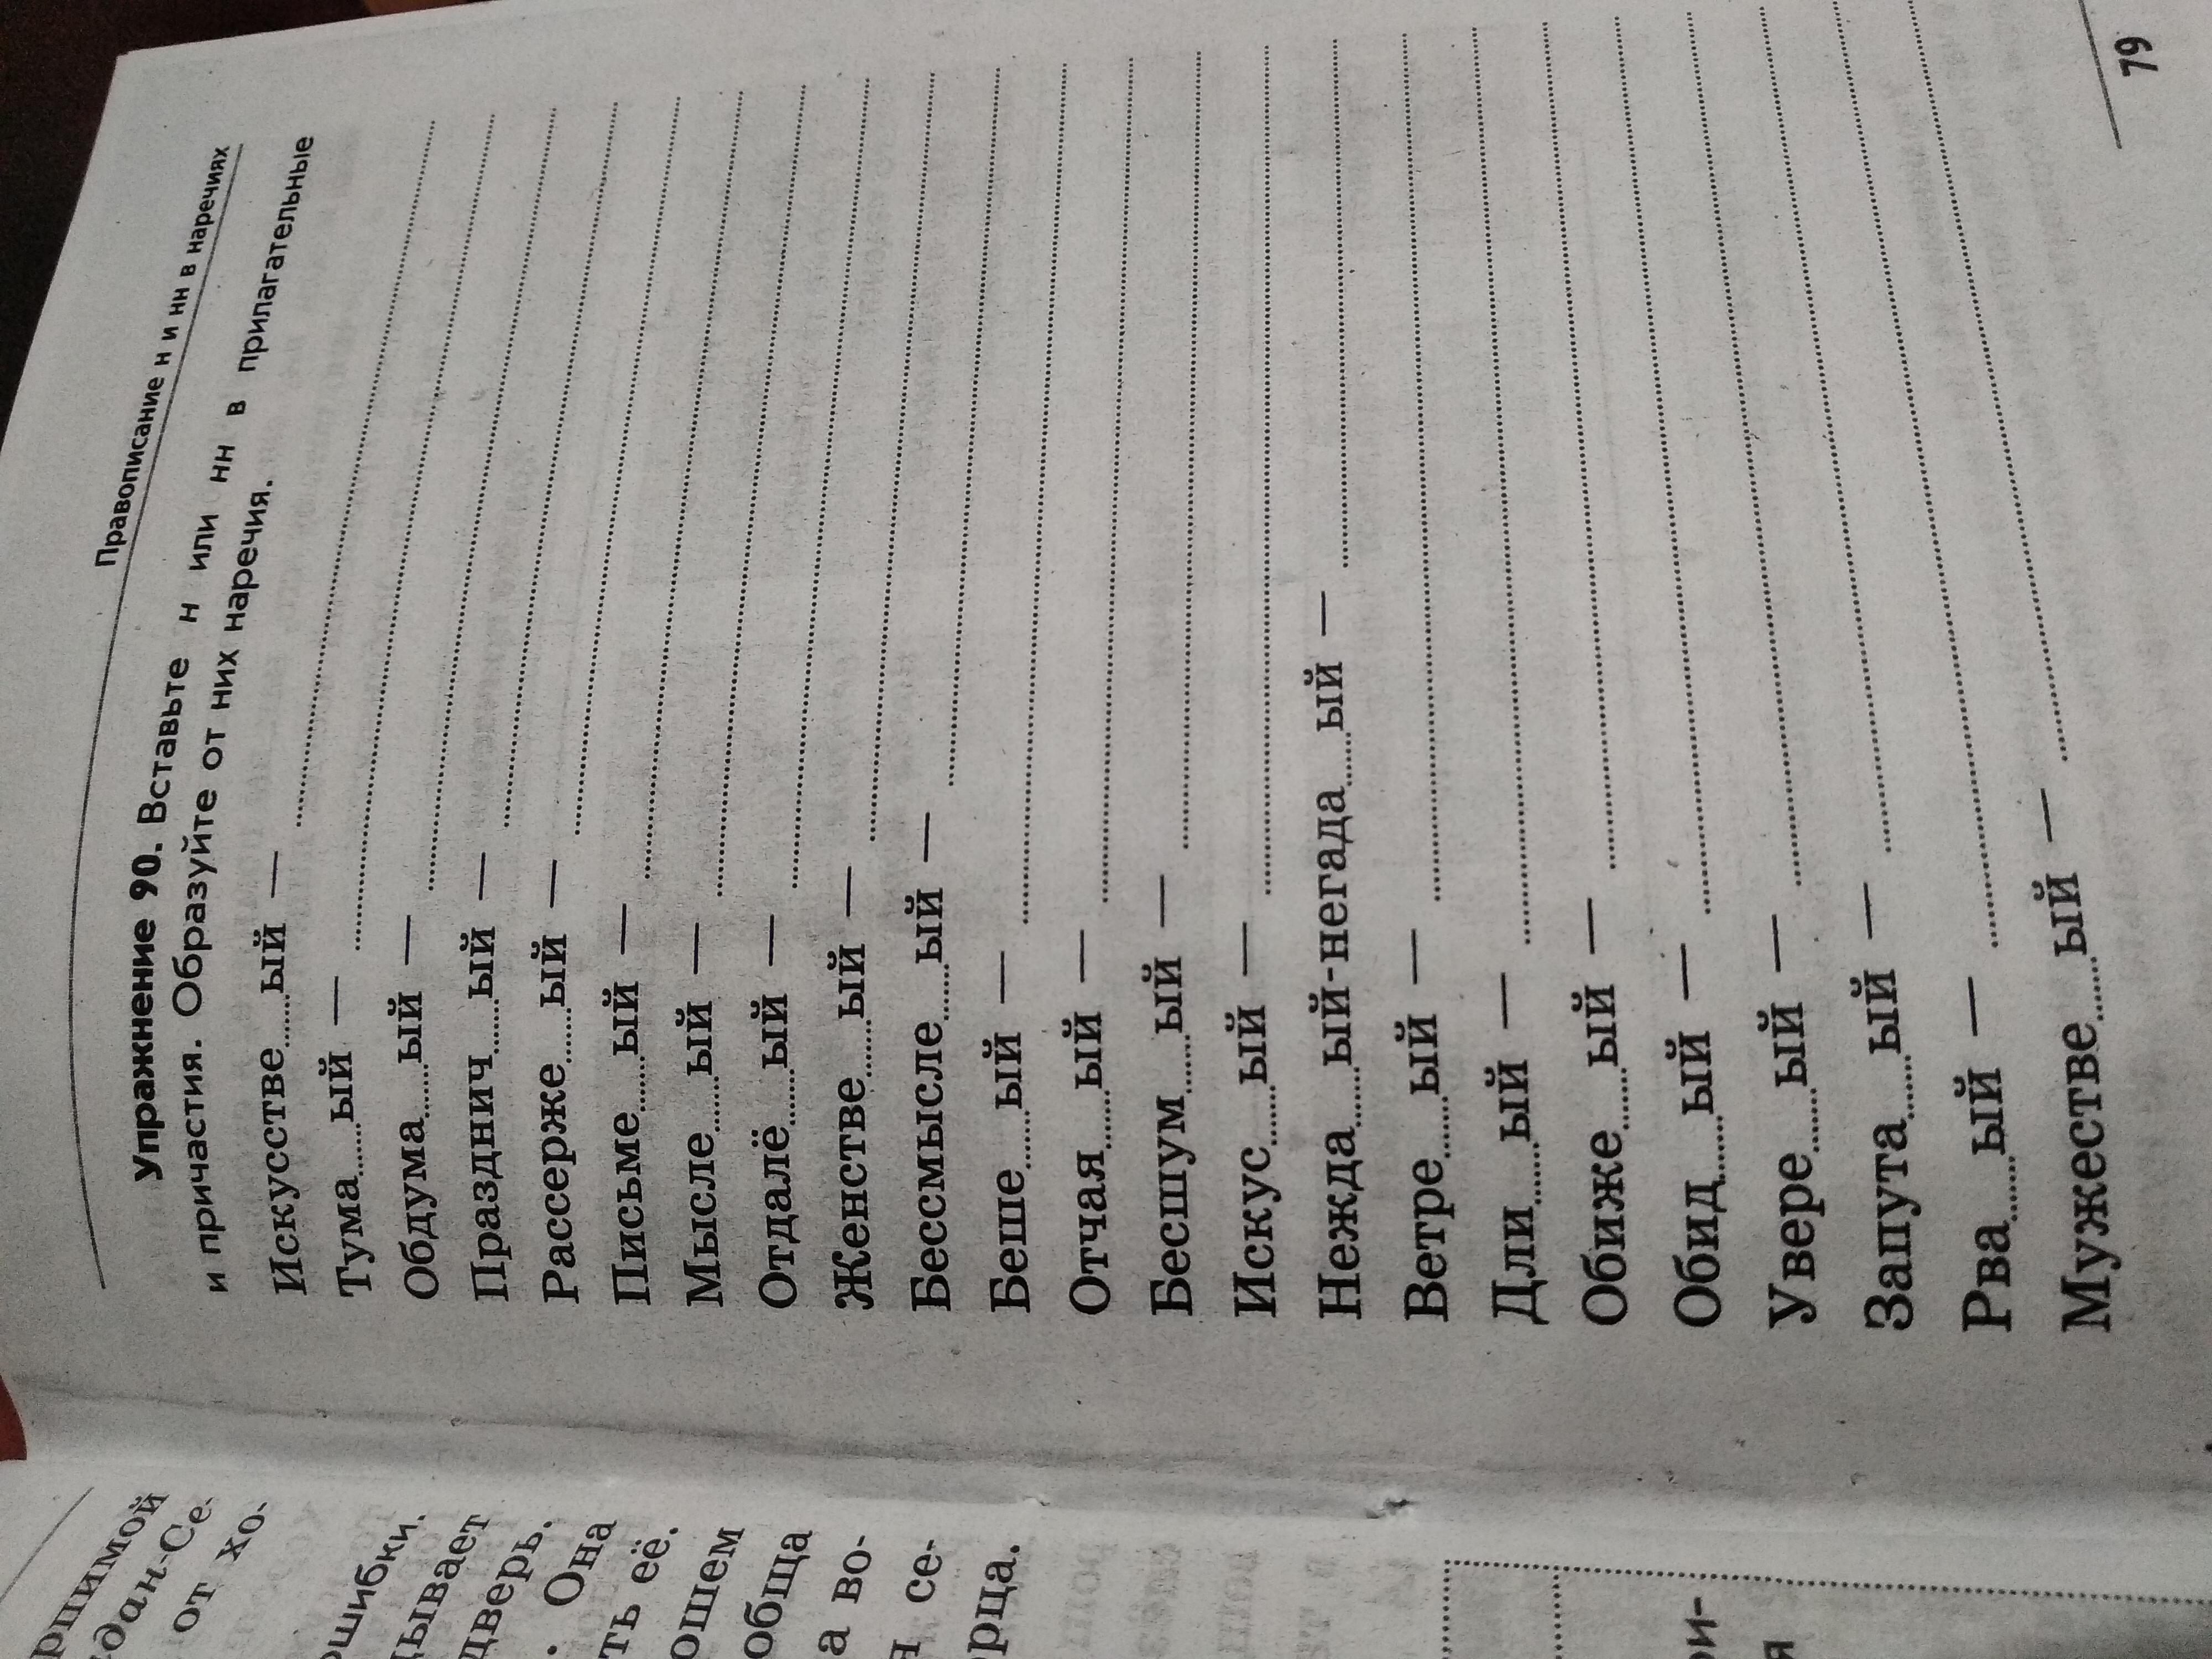 ршимой
дан-Се-
от хо-
ршибки.
цывает
дверь.
. Она
ть её.
ошем
обща
а во-
н се-
рца.
ри-
я
Правописание н и нн в наречиях
Упражнение 90. Вставьте н или нн в прилагательные
и причастия. Образуйте от них наречия.
Искусстве......ый —
Тума......ый —
Обдума......ый —
Празднич......ый —
Рассерже......ый —
Письме......ый —
Мысле......ый —
Отдалё......ый —
Женстве......ый —
Бессмысле......ый —
Беше......ый —
Отчая......ый —
Бесшум......ый —
Искус......ый —
Нежда......ый-негада......ый —
Ветре......ый —
Дли......ый —
Обиже......ый —
Обид......ый —
Увере......ый —
Запута......ый —
Рва......ый —
Мужестве......ый —
79